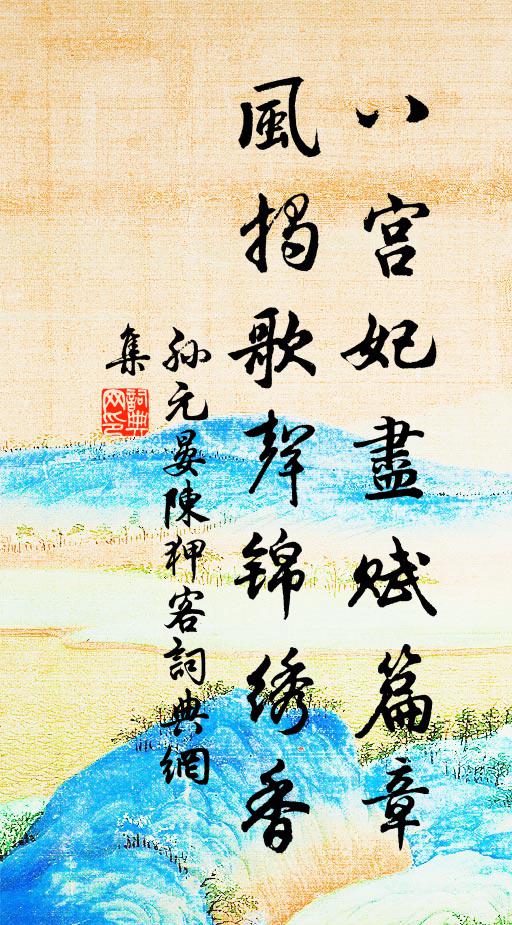 八宮妃盡賦篇章
風揭歌聲錦綉香
孙元晏陳狎客詞典網
集
詞典
网印